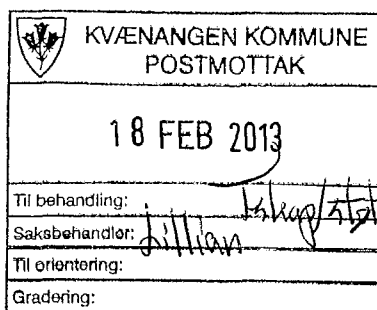 KVÆNANGEN KOMMUNE
POSTMOTTAK
18 FEB 2013
Til behandling:
Saksbehandler: Lillian
Til orientering:
Gradering: